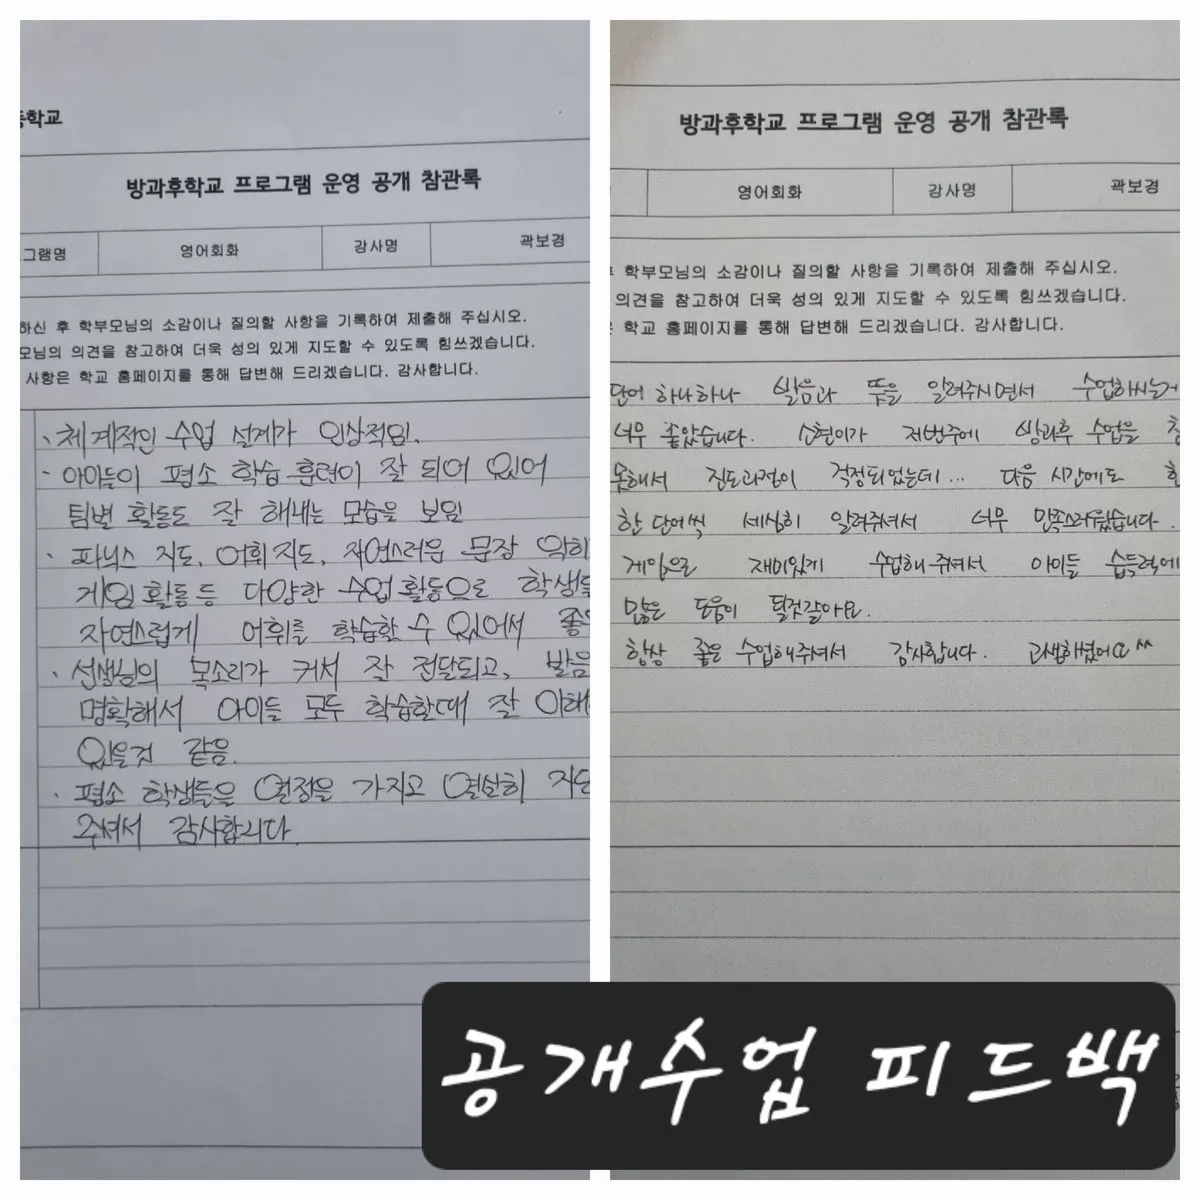 등학교
방과후학교 프로그램 운영 공개 참관록
그램명 영어회화 강사명 곽보경
하신 후 학부모님의 소감이나 질의할 사항을 기록하여 제출해 주십시오.
모님의 의견을 참고하여 더욱 성의 있게 지도할 수 있도록 힘쓰겠습니다.
사항은 학교 홈페이지를 통해 답변해 드리겠습니다. 감사합니다.
· 체계적인 수업 설계가 인상적임.
· 아이들이 평소 학습 훈련이 잘 되어 있어
팀별 활동도 잘 해내는 모습을 보임
· 파닉스 지도, 어휘지도, 자연스러운 문장 익히
게임활동 등 다양한 수업활동으로 학생들
자연스럽게 어휘를 학습할 수 있어서 좋
· 선생님의 목소리가 커서 잘 전달되고, 발음
명확해서 아이들 모두 학습할때 잘 이해
있을것 같음.
· 평소 학생들을 열정을 가지고 열심히 지도
주셔서 감사합니다.
방과후학교 프로그램 운영 공개 참관록
영어회화 강사명 곽보경
후 학부모님의 소감이나 질의할 사항을 기록하여 제출해 주십시오.
의견을 참고하여 더욱 성의 있게 지도할 수 있도록 힘쓰겠습니다.
은 학교 홈페이지를 통해 답변해 드리겠습니다. 감사합니다.
단어 하나하나 발음과 뜻을 알려주시면서 수업하시는게
너무 좋았습니다. 저번주에 방과후 수업을 참
못해서 진도과정이 걱정되었는데... 다음 시간에도 한
한 단어씩 세심히 알려주셔서 너무 만족스러웠습니다.
게임으로 재미있게 수업해주셔서 아이들 습득력에
많은 도움이 될것같아요.
항상 좋은 수업해주셔서 감사합니다. 고생하셨어요^^
공개수업 피드백